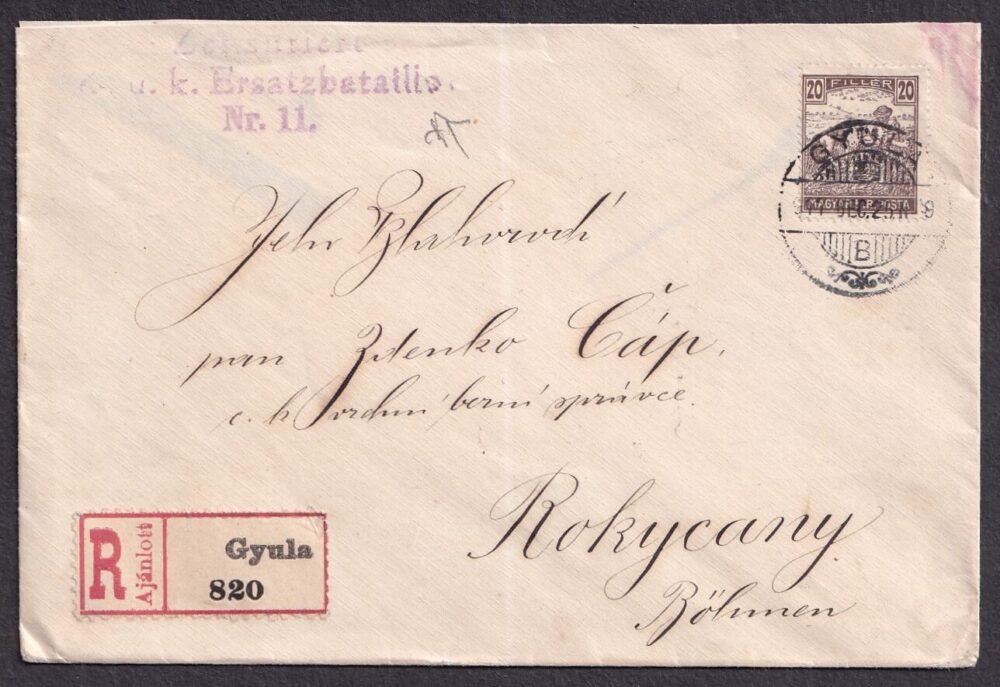 Zensuriert
k. u. k. Ersatzbataillo.
Nr. 11.
20 FILLÉR 20
MAGYAR KIR. POSTA
GYULA
917 DEC. 2
B
Jeho Blahorodí
pan Zdenko Čáp,
c. k. vrchní berní správce.
Rokycany
Böhmen
R Ajánlott
Gyula
820